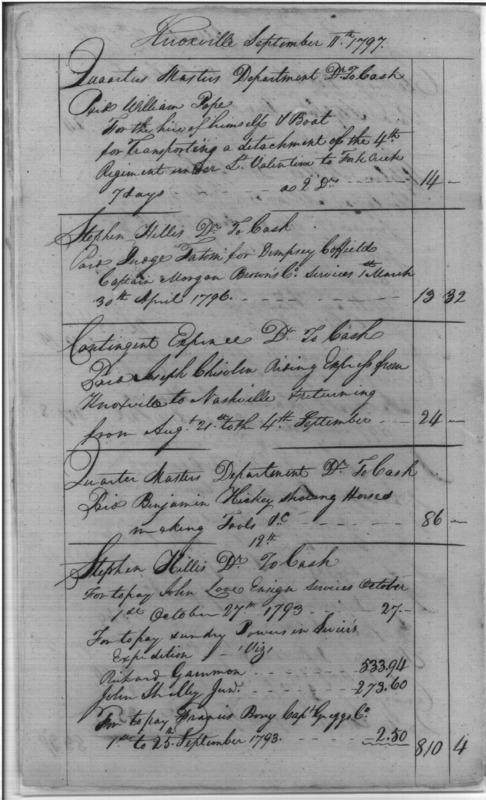 Knoxville September 11th 1797.
Quarter Masters Department Dr. To Cash
Paid William Pope
For the hire of himself & Boat
for Transporting a detachment of the 4th
Regiment under Lt. Valentine to Creek
7 days - - - a 2 Dr - - - 14 —
Stephen Hillis Dr. To Cash
Paid Judge Tatom for Dempsey Coffield
Captain Morgan Brown's Co. Services 1st March
30th April 1796. - - - 13 32
Contingent Expence Dr. To Cash
Paid Joseph Chisolm riding Express from
Knoxville to Nashville & returning
from Augt. 21st to th 4th September - - - 24 —
Quarter Masters Department Dr. To Cash
Paid Benjamin Hickey shoeing Horses
making Tools &C - - - 86 —
12th
Stephen Hillis Dr. To Cash
For to pay John Love Ensign Services October
1st October 27th 1793 - - - 27.-
For to pay sundry Powers in Sevier's
Expedition Viz,
Richard Gammon - - - 533.94
John Shelby Junr. - - - 273.60
For to pay Francis Bony Capt. Greggs Co.
1st to 25th September 1793. - - - 2.50 810 4